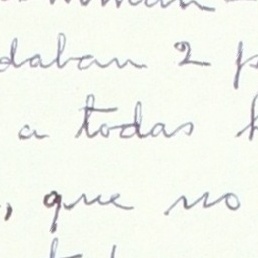 daban 2
a todas
, que no